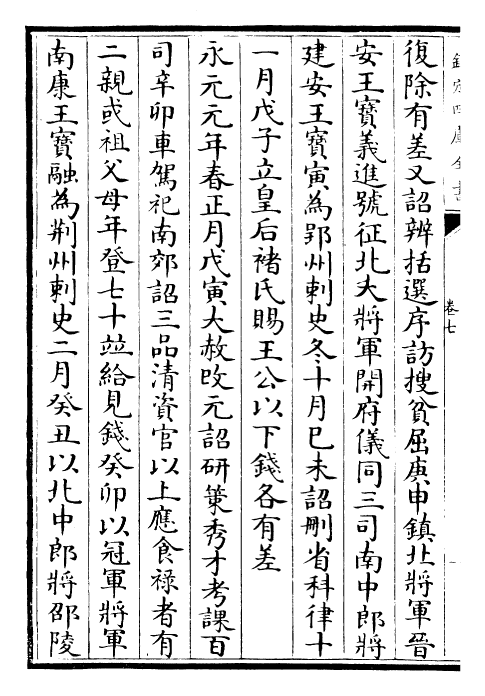 欽定四庫全書
卷七
復除有差又詔辨括選序訪搜貧屈庚申鎮北將軍晉
安王寶義進號征北大將軍開府儀同三司南中郎將
建安王寶寅為郢州刺史冬十月巳未詔刪省科律十
一月戊子立皇后褚氏賜王公以下錢各有差
永元元年春正月戊寅大赦改元詔研策秀才考課百
司辛卯車駕祀南郊詔三品清資官以上應食祿者有
二親或祖父母年登七十並給見錢癸卯以冠軍將軍
南康王寶融為荆州刺史二月癸丑以北中郎將邵陵